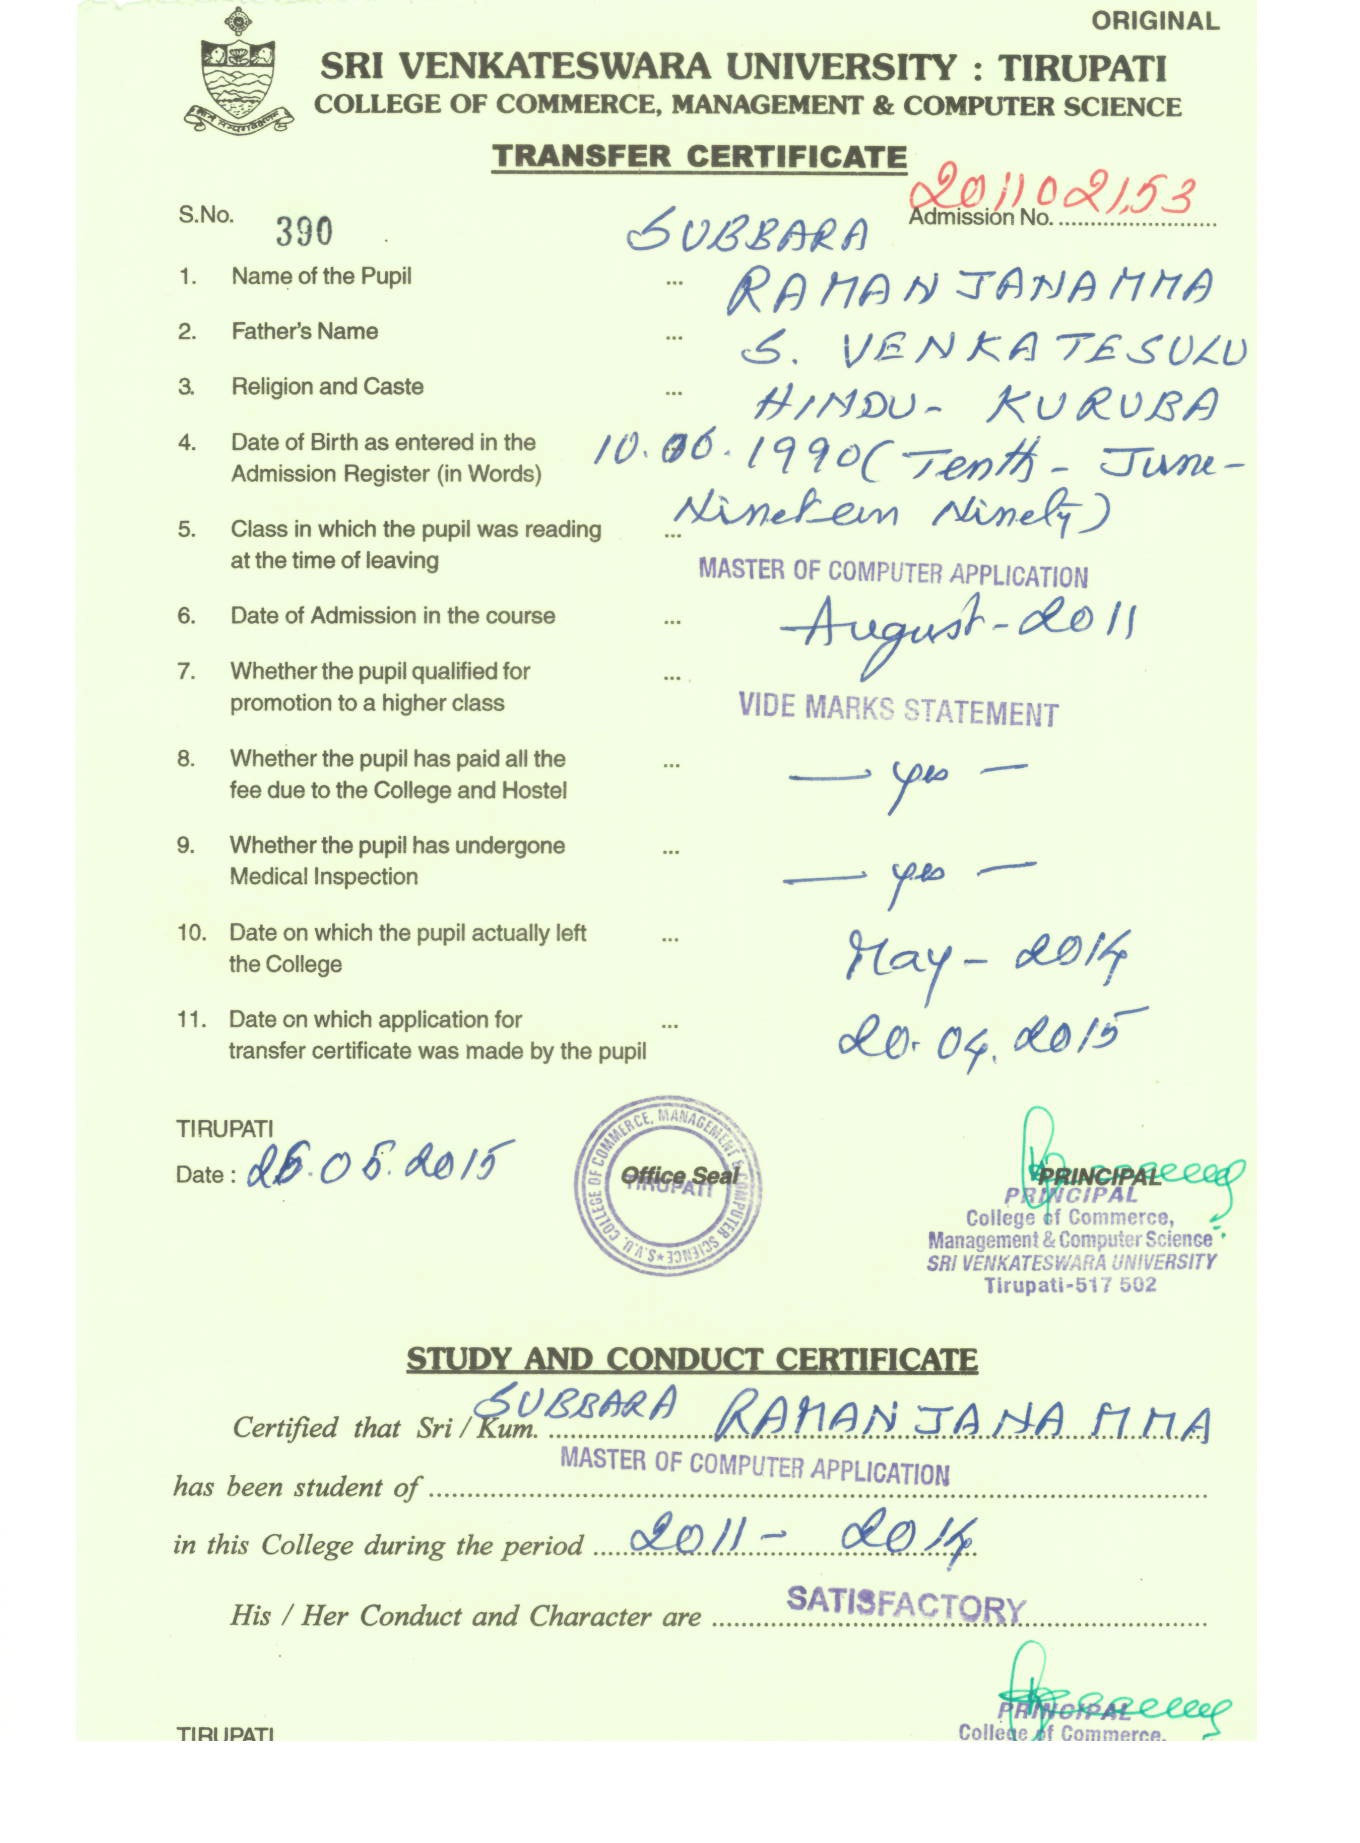 ORIGINAL
SRI VENKATESWARA UNIVERSITY : TIRUPATI
COLLEGE OF COMMERCE, MANAGEMENT & COMPUTER SCIENCE
TRANSFER CERTIFICATE
S.No. 390
Admission No. 2011021,53
SUBBARA
1. Name of the Pupil ... RAMANJANAMMA
2. Father's Name ... S. VENKATESULU
3. Religion and Caste ... HINDU- KURUBA
4. Date of Birth as entered in the 10.06.1990 (Tenth - June-
Admission Register (in Words)
Nineteen Ninety)
5. Class in which the pupil was reading ...
at the time of leaving MASTER OF COMPUTER APPLICATION
6. Date of Admission in the course ... August-2011
7. Whether the pupil qualified for ...
promotion to a higher class VIDE MARKS STATEMENT
8. Whether the pupil has paid all the ... — yes —
fee due to the College and Hostel
9. Whether the pupil has undergone ... — yes —
Medical Inspection
10. Date on which the pupil actually left ... May - 2014
the College
11. Date on which application for ... 20.04.2015
transfer certificate was made by the pupil
TIRUPATI
Date : 26.05.2015
S.V.U. COLLEGE OF COMMERCE, MANAGEMENT & COMPUTER SCIENCE★
Office Seal
TIRUPATI
PRINCIPAL
PRINCIPAL
College of Commerce,
Management & Computer Science
SRI VENKATESWARA UNIVERSITY
Tirupati-517 502
STUDY AND CONDUCT CERTIFICATE
Certified that Sri / Kum. SUBBARA RAMANJANAMMA
has been student of MASTER OF COMPUTER APPLICATION
in this College during the period 2011 - 2014
His / Her Conduct and Character are SATISFACTORY
PRINCIPAL
TIRUPATI
College of Commerce,